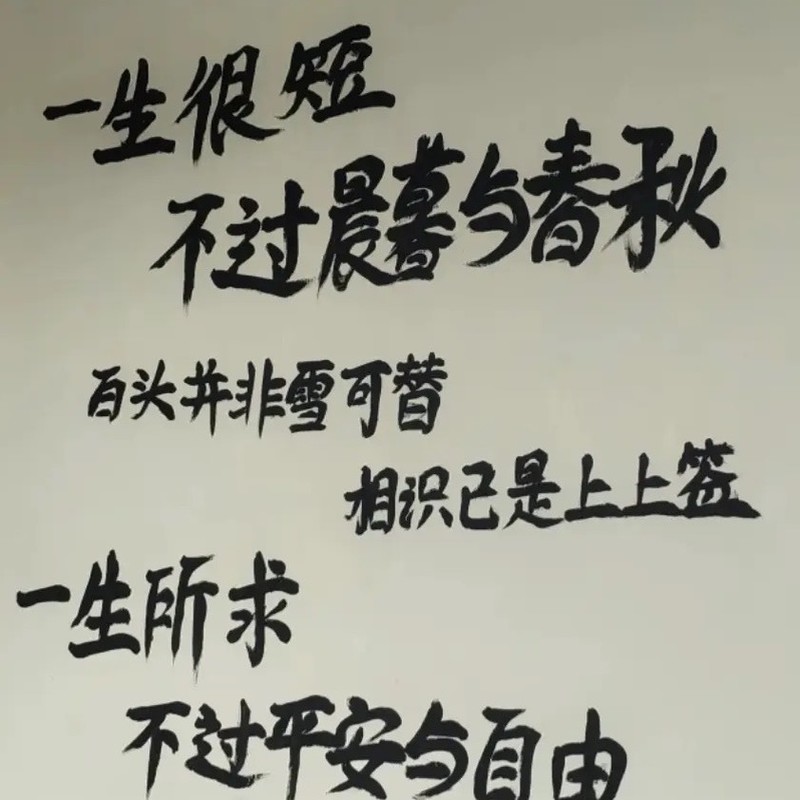 一生很短
不过晨暮与春秋
百头并非雪可替
相识已是上上签
一生所求
不过平安与自由